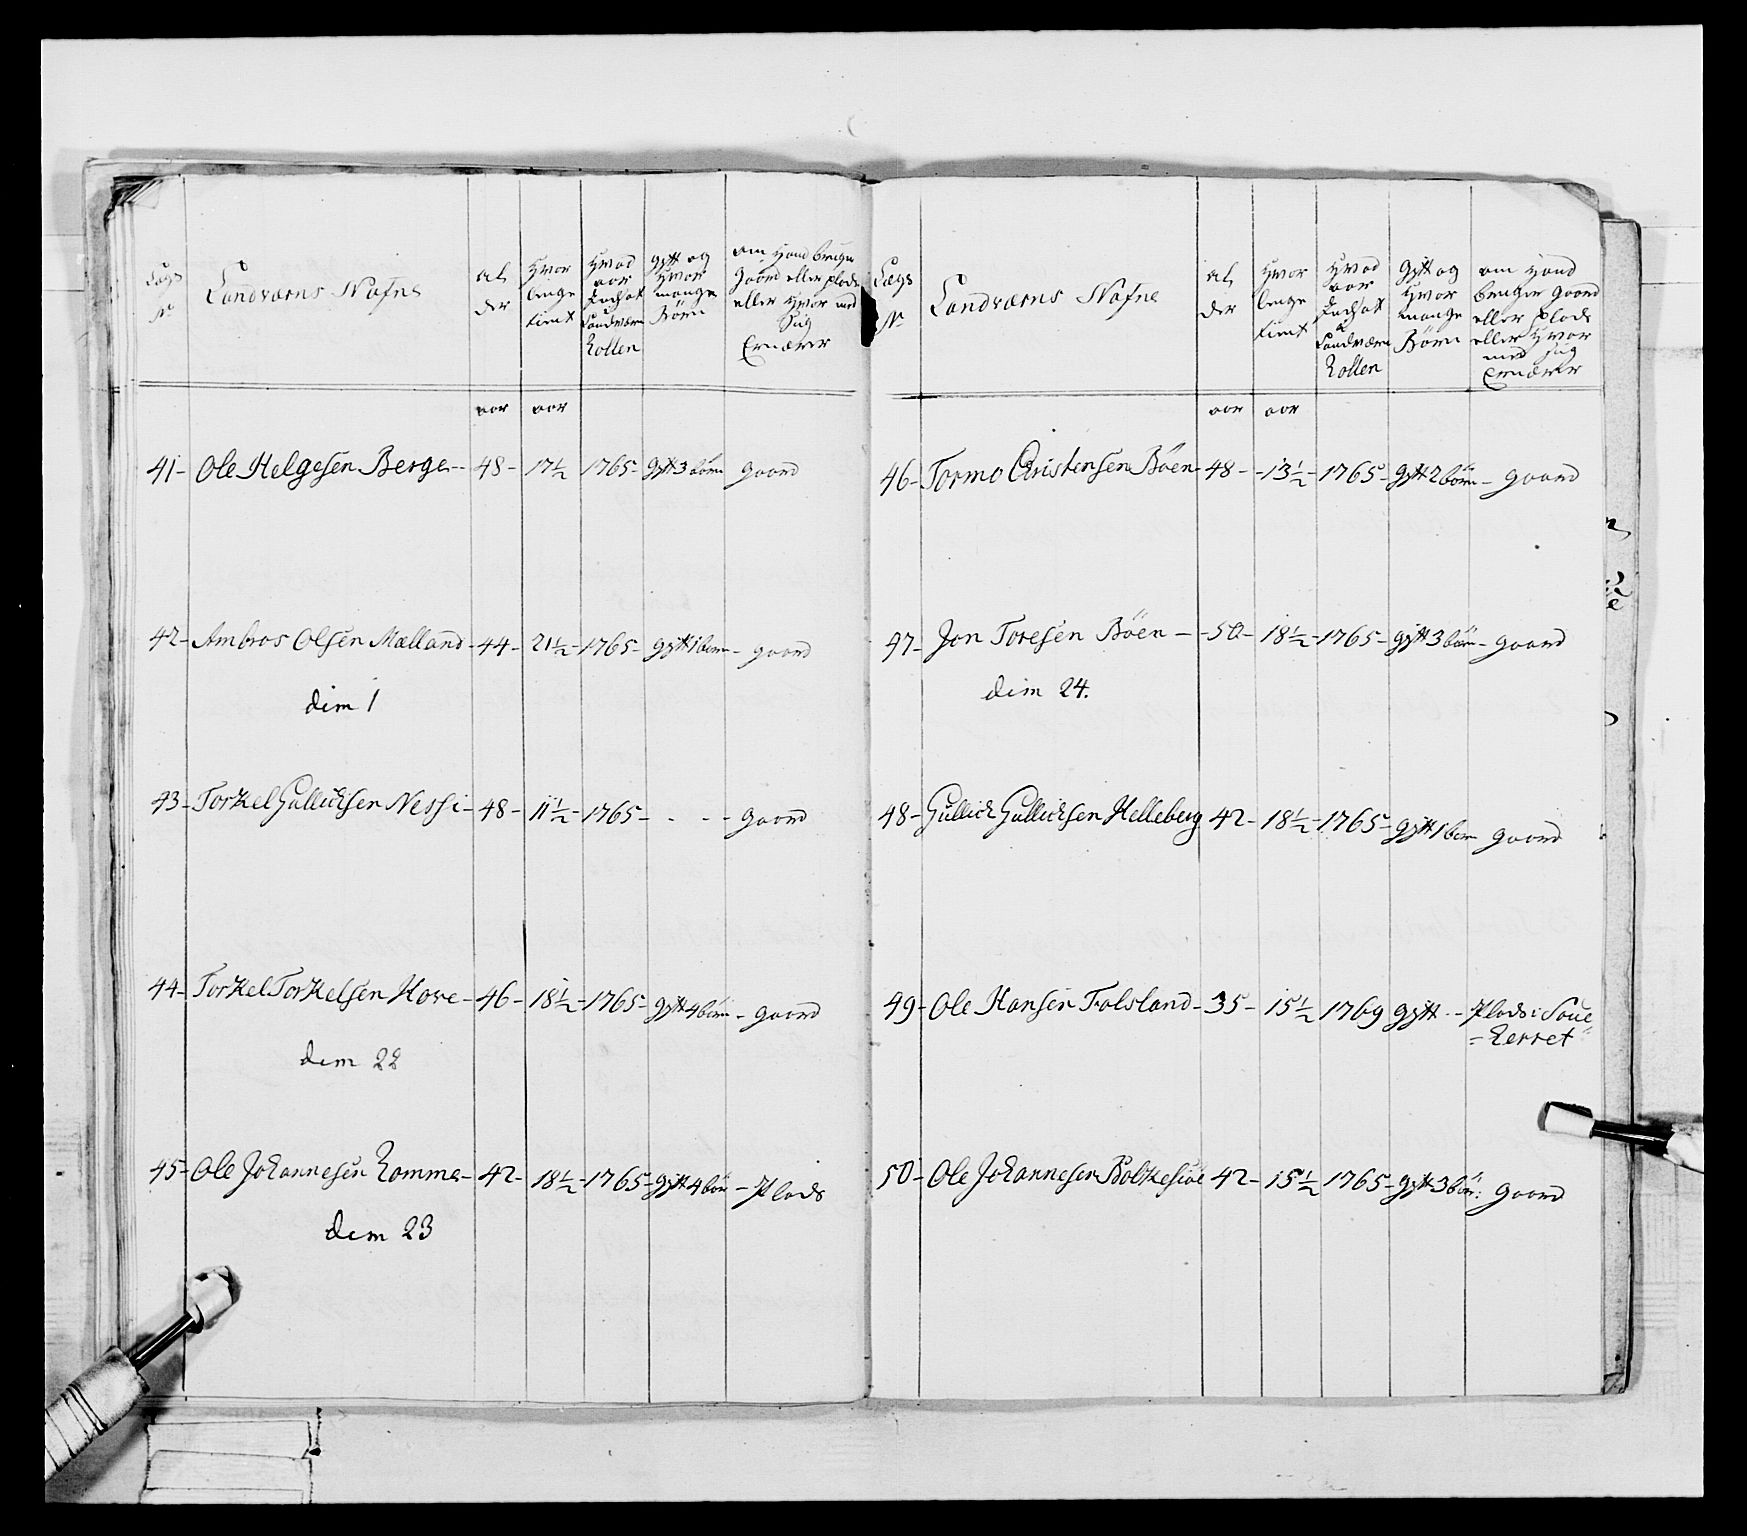 Lægs No
Landværns Nafne
al der
Hvor lenge tient
Hvad aar Indsat i Landværn Rollen
gift og Hvor mange Börn
om Hand bruger Gaard eller plads eller Hvor med Sig Ernærer
aar aar
41- Ole Helgesen Berge-- 48- 17½ 1765- gift 3 börn gaard
42- Ambros Olsen Mælland- 44- 21½- 1765- gift 1 barn- gaard
dim 1
43- Torkel Gullichsen Nessi- 48- 11½- 1765- - - - gaard
44- Torkel Torkelsen Hove- 46- 18½- 1765- gift 4 börn- gaard
dim 22
45- Ole Johannesen Romme- 42- 18½- 1765- gift 4 bör- Plads
dim 23
Lægs No
Landværns Nafne
al der
Hvor lenge tient
Hvad aar Indsat i Landværn Rollen
Gift og Hvor mange Börn
om Hand bruger Gaard eller Plads eller Hvor med Sig Ernærer
aar aar
46- Tormo Christensen Böen- 48- -13½- 1765- gift 2 börn- gaard
47- Jon Toresen Böen- -50- 18½- 1765- gift 3 börn- gaard
dim 24.
48- Gullich Gullichsen Helleberg 42- 18½- 1765- gift 1 barn gaard
49- Ole Hansen Frolsland- 35- 15½ 1769 gift -- Plads i Soue
=herret
50- Ole Johannesen Bolkesiöe 42- 15½ 1765- gift 3 bör: gaard